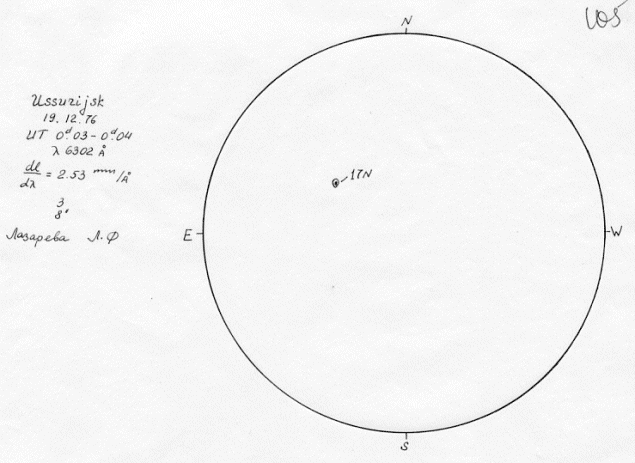 105
N
Ussurijsk
19.12.76
UT 0ᵈ.03 - 0ᵈ.04
λ 6302 Å
dl/dλ = 2.53 mm/Å
3
8"
Лазарева Л.Ф
17N
E
W
S